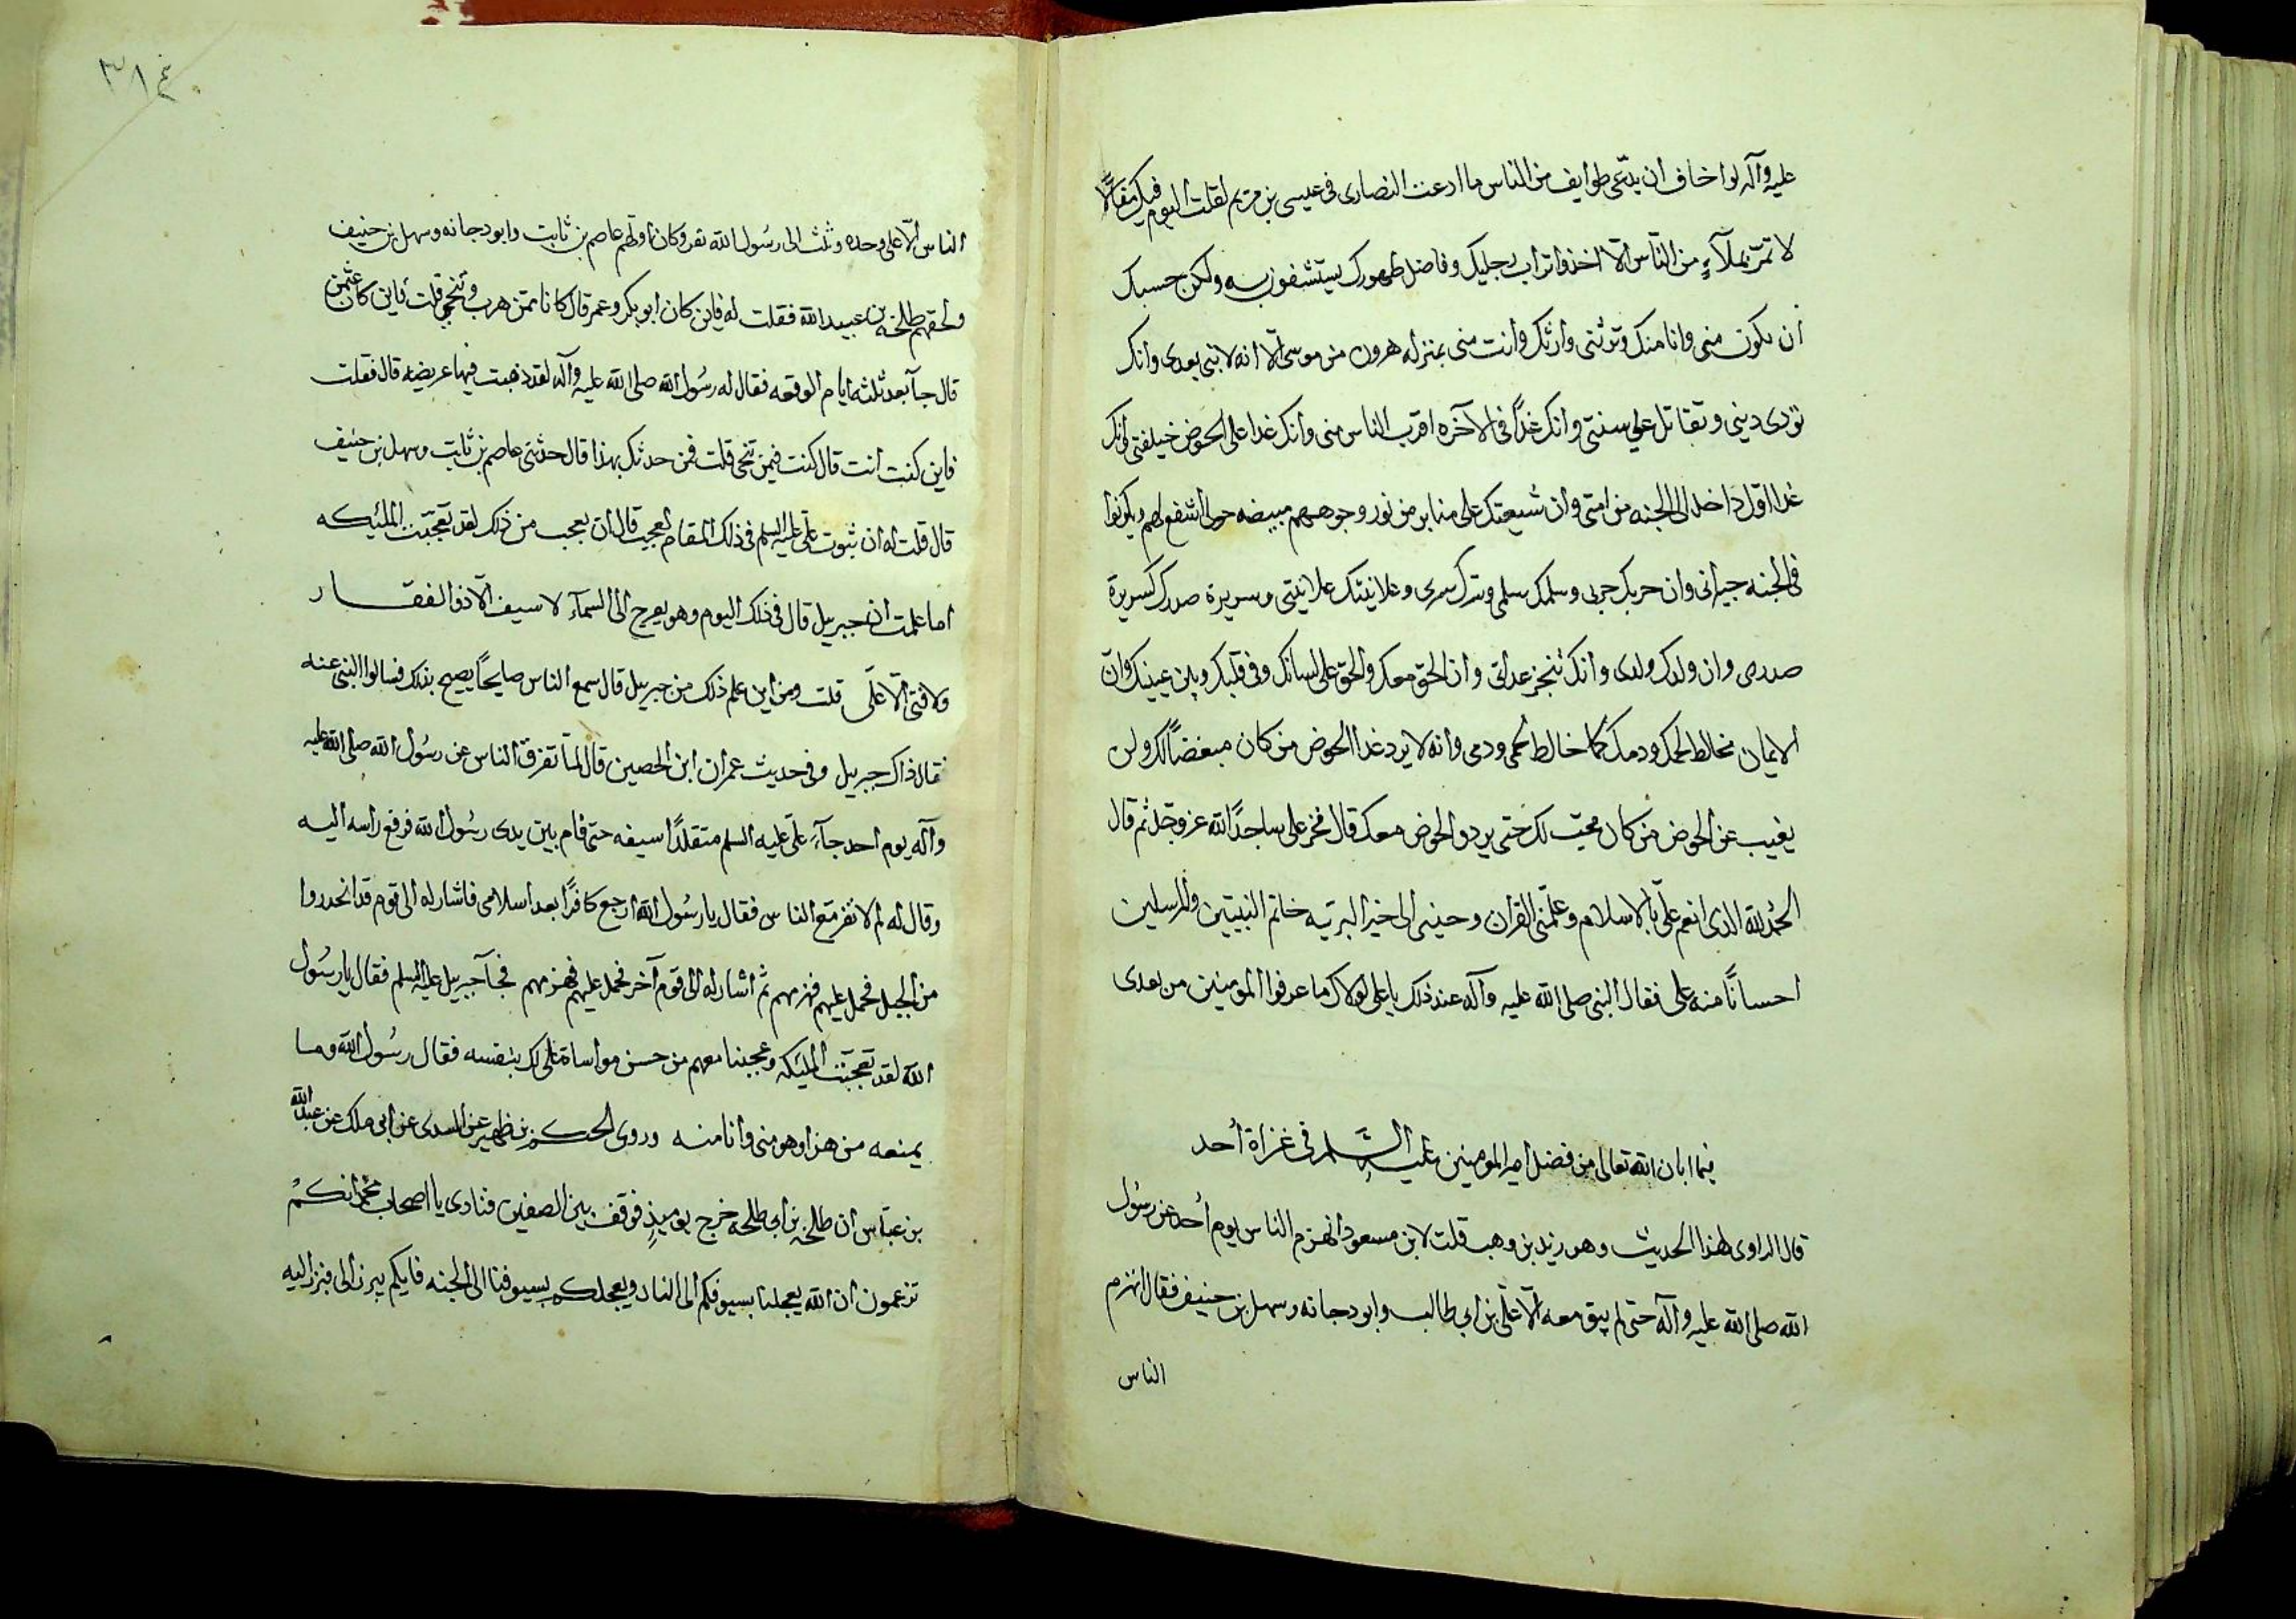 عليه وآله لوا خاف ان يدّعى طوايف من الناس ما ادعت النصارى فى عيسى بن مريم لقلت اليوم فيك مقالًا
لا تمرّ بملآءٍ من النّاس الّا اخذوا تراب رجليك وفاضل طهورك يستشفون به ولكن حسبك
ان تكون منى وانا منك وترثنى وارثك وانت منى بمنزله هرون من موسى الّا انه لا نبى بعدى وانك
تؤدى دينى وتقاتل على سنتى وانك غدًا فى الآخره اقرب الناس منى وانك غدا على الحوض خليفتى وانك
غدا اوّل داخل الى الجنه من امتى وان شيعتك على منابر من نور وجوههم مبيضه حولى اشفع لهم ويكونوا
فى الجنه جيرانى وان حربك حربى وسلمك سلمى وسرك سرى وعلانيتك علانيتى وسريرة صدرك كسريرة
صدرى وان ولدك ولدى وانك تنجز عداتى وان الحق معك والحق على لسانك وفى قلبك وبين عينيك وانّ
الايمان مخالط لحمك ودمك كما خالط لحمى ودمى وانه لا يرد غدا الحوض من كان مبغضًا لك ولن
يغيب عن الحوض من كان محبّ لك حتى يردوا الحوض معك قال فخر على ساجدًا لله عز وجلّ ثم قال
الحمد لله الذى انعم علىّ بالاسلام وعلّمنى القران وحببنى الى خير البريّه خاتم النبيّين والمرسلين
احسانًا منه على فقال النبى صلى الله عليه وآله عند ذلك يا على لولاك ما عرفوا المومنين من بعدى
فيما ابان الله تعالى من فضل امير المومنين عليه السَّلام فى غزاة أحد
قال الراوى لهذا الحديث وهو زيد بن وهب قلت لابن مسعود انهزم الناس يوم أحد عن رسُول
الله صلى الله عليه وآله حتى لم يبق معه الّا علىّ بن ابي طالب وابو دجانه وسهل بن حنيف فقال انهزم
الناس
٣١٤
الناس الّا على وحده وثلث الى رسُول الله نفر وكان اولهم عاصم بن ثابت وابو دجانه وسهل بن حنيف
ولحقهم طلحه بن عبيد الله فقلت له فاين كان ابو بكر وعمر قال كانا ممّن هرب وتنحى قلت فاين كان عثمن
قال جآ بعد ثلثه ايام الوقعه فقال له رسُول الله صلى الله عليه وآله لقد ذهبت فيها عريضه قال فقلت
فاين كنت انت قال كنت فيمن تنحى قلت فمن حدثك بهذا قال حدثنى عاصم بن ثابت وسهل بن حنيف
قال قلت له ان ثبوت علىّ عليه السلم فى ذلك المقام لعجيب قال ان يعجب من ذلك لقد تعجّبت الملئكه
اما علمت ان جبريل قال فى ذلك اليوم وهو يعرج الى السمآء لا سيف الّا ذو الفقار
ولا فتى الّا علّى قلت ومن اين علم ذلك من جبريل قال سمع الناس صايحًا يصيح بذلك فسالوا النبى عنه
فقال ذاك جبريل وفى حديث عمران ابن الحصين قال لمّا تفرق الناس عن رسُول الله صلى الله عليه
وآله يوم احد جآءَ علىّ عليه السلم متقلدًا سيفه حتى قام بين يدى رسُول الله فرفع راسه اليه
وقال له لم لا تفر مع الناس فقال يا رسُول الله ارجع كافرًا بعد اسلامى فاشار له الى قوم قد انحدروا
من الجبل فحمل عليهم فهزمهم ثم اشار له الى قوم آخر فحمل عليهم فهزمهم فجآ جبريل عليه السلم فقال يا رسُول
الله لقد تعجّبت المليكه وعجبنا معهم من حسن مواساة على لك بنفسه فقال رسُول الله وما
يمنعه من هذا وهو منى وانا منه وروى الحكم بن ظهير عن السدى عن ابى ملك عن عبد الله
بن عبّاس ان طلحه بن ابى طلحه خرج يوميذٍ فوقف بين الصفين فنادى يا اصحاب محمّد انكم
تزعمون ان الله يعجلنا بسيوفكم الى النار ويعجلكم بسيوفنا الى الجنه فايكم يبرز الى فبرز اليه